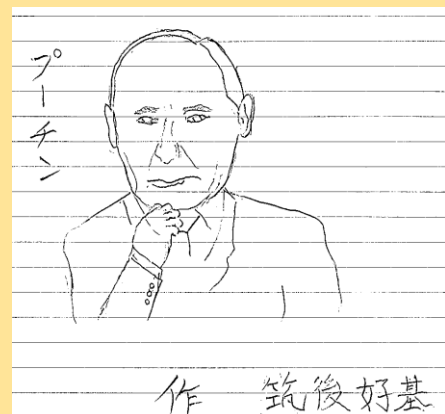 プーチン
作 筑後好基